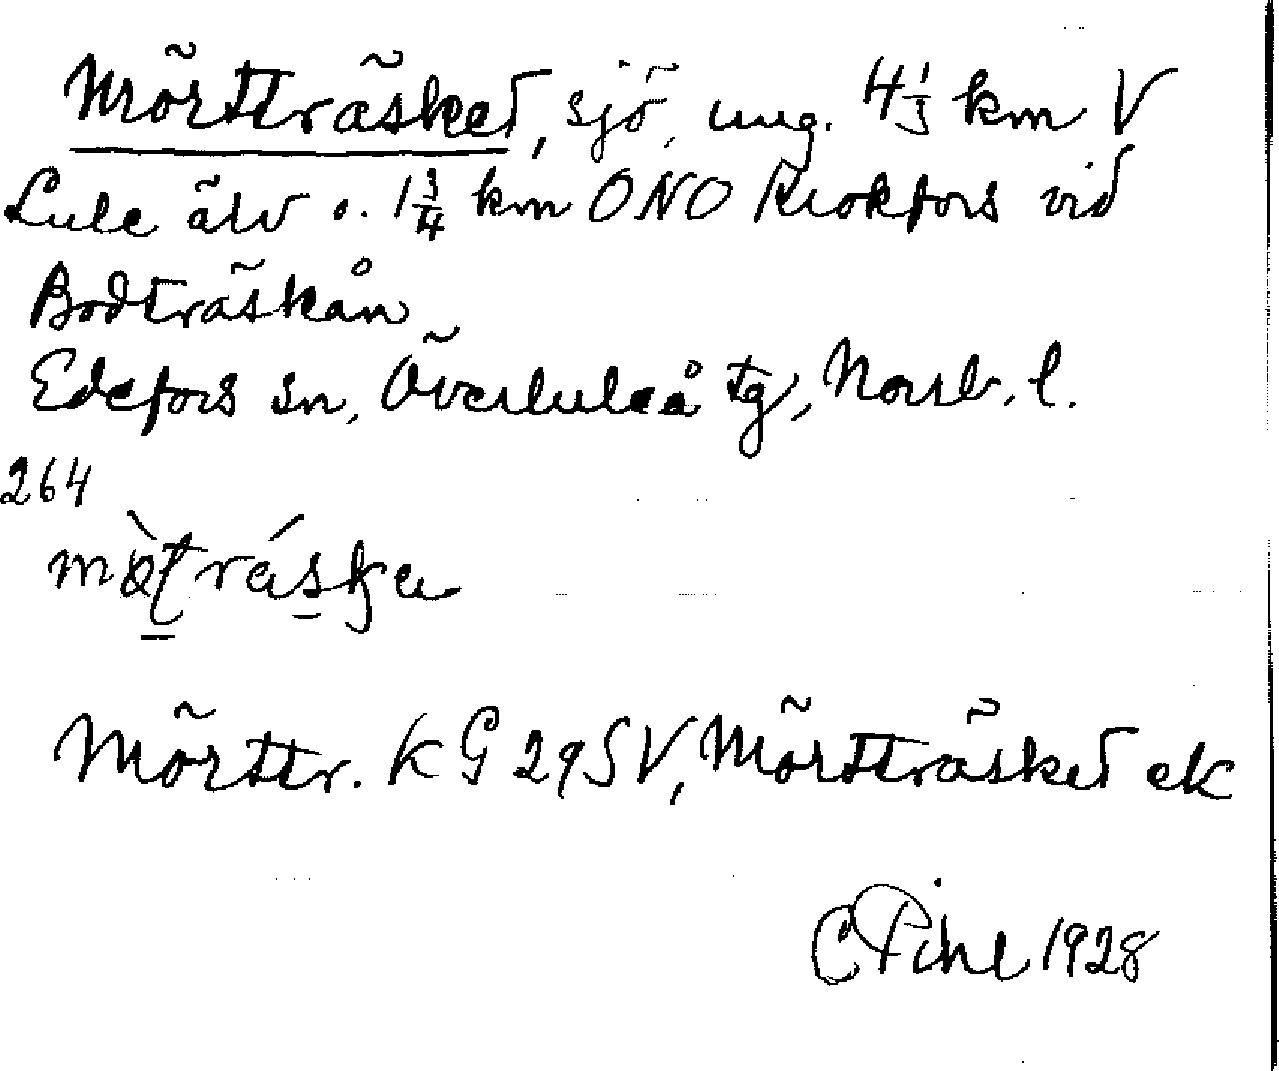 Mörtträsket, sjö, ung. 4 1/3 km V
Lule älv o. 1 3/4 km ONO Krokfors vid
Bodträskån
Edefors sn, Överluleå tg, Norrb. l.
264
Mörttr. KG 29 SV, Mörtträsket ek
C Pihl 1928